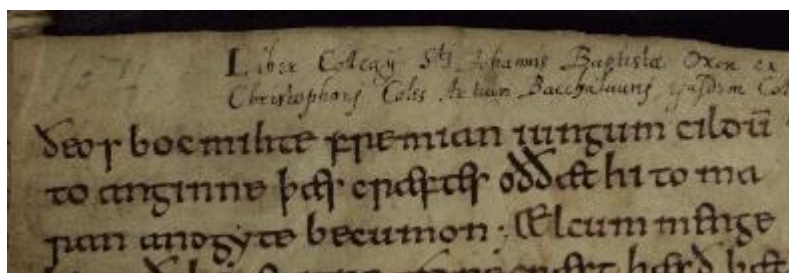 Liber Collegij Sti Johannis Baptistæ Oxon ex
Christophori Coles Artium Bacchalaurij ejusdem Col
ðeos boc mihte fremian iungum cildū
to anginne þæs cræftes oððæt hi to ma
ran andgyte becumon ; Ælcum menn ge